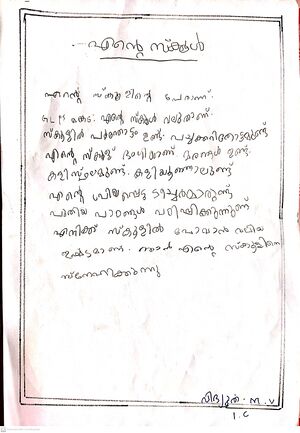 എന്റെ സ്കൂൾ
എന്റെ സ്കൂളിന്റെ പേരാണ്
GLPS എന്റെ സ്കൂൾ വലുതാണ്.
സ്കൂളിൽ പൂന്തോട്ടം ഉണ്ട്. പച്ചക്കറിത്തോട്ടമുണ്ട്
എന്റെ സ്കൂള് ഭംഗിയാണ്. മരങ്ങൾ ഉണ്ട്.
കളിസ്ഥലമുണ്ട്. കളിയൂഞ്ഞാലുണ്ട്
എന്റെ പ്രിയപ്പെട്ട ടീച്ചർമാരുണ്ട്
പുതിയ പാഠങ്ങൾ പഠിപ്പിക്കുന്നുണ്ട്
എനിക്ക് സ്കൂളിൽ പോവാൻ വലിയ
ഇഷ്ടമാണ്. ഞാൻ എന്റെ സ്കൂളിനെ
സ്നേഹിക്കുന്നു
വിദ്യുത്. M. V
1. C